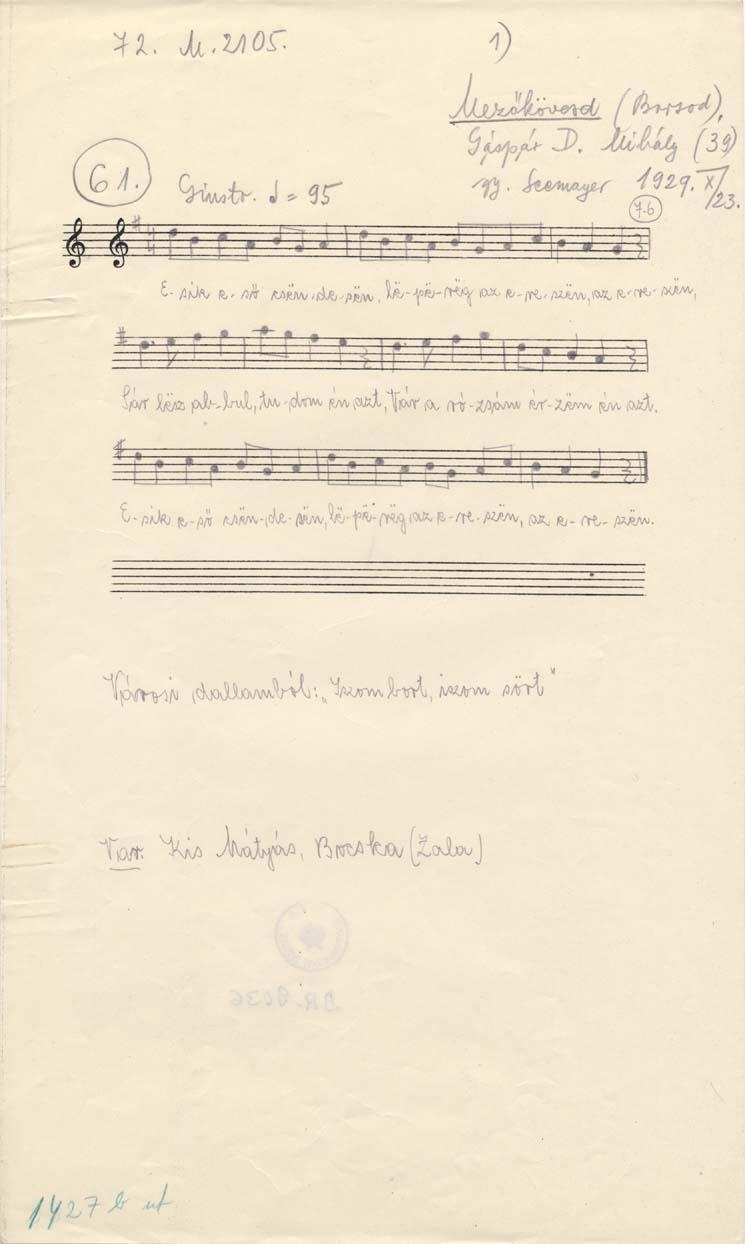 72. M. 2105.
1)
Mezőkövesd (Borsod),
Gáspár D. Mihály (39)
gy. Seemayer 1929. X/23.
61.
Giustr. = 95
7.6
E-sik e-ső csën-de-sën, lë-pë-rëg az e-re-szën, az e-re-szën,
Sár lësz ab-bul, tu-dom én azt, Vár a ró-zsám ér-zëm én azt.
E-sik e-ső csën-de-sën, lë-pë-rëg az e-re-szën, az e-re-szën.
Városi dallamból: „Iszom bort, iszom sört"
Var: Kis Mátyás, Bocska (Zala)
1427 b ut